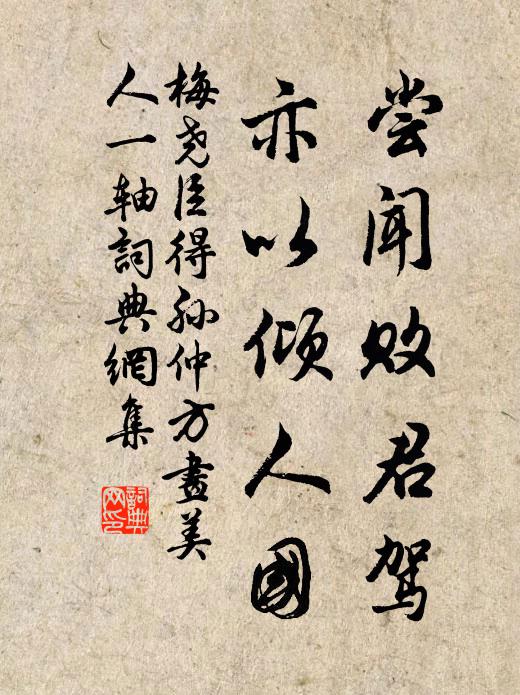 尝闻败君驾
亦以倾人国
梅尧臣得孙仲方畫美
人一轴詞典網集
詞典
网印